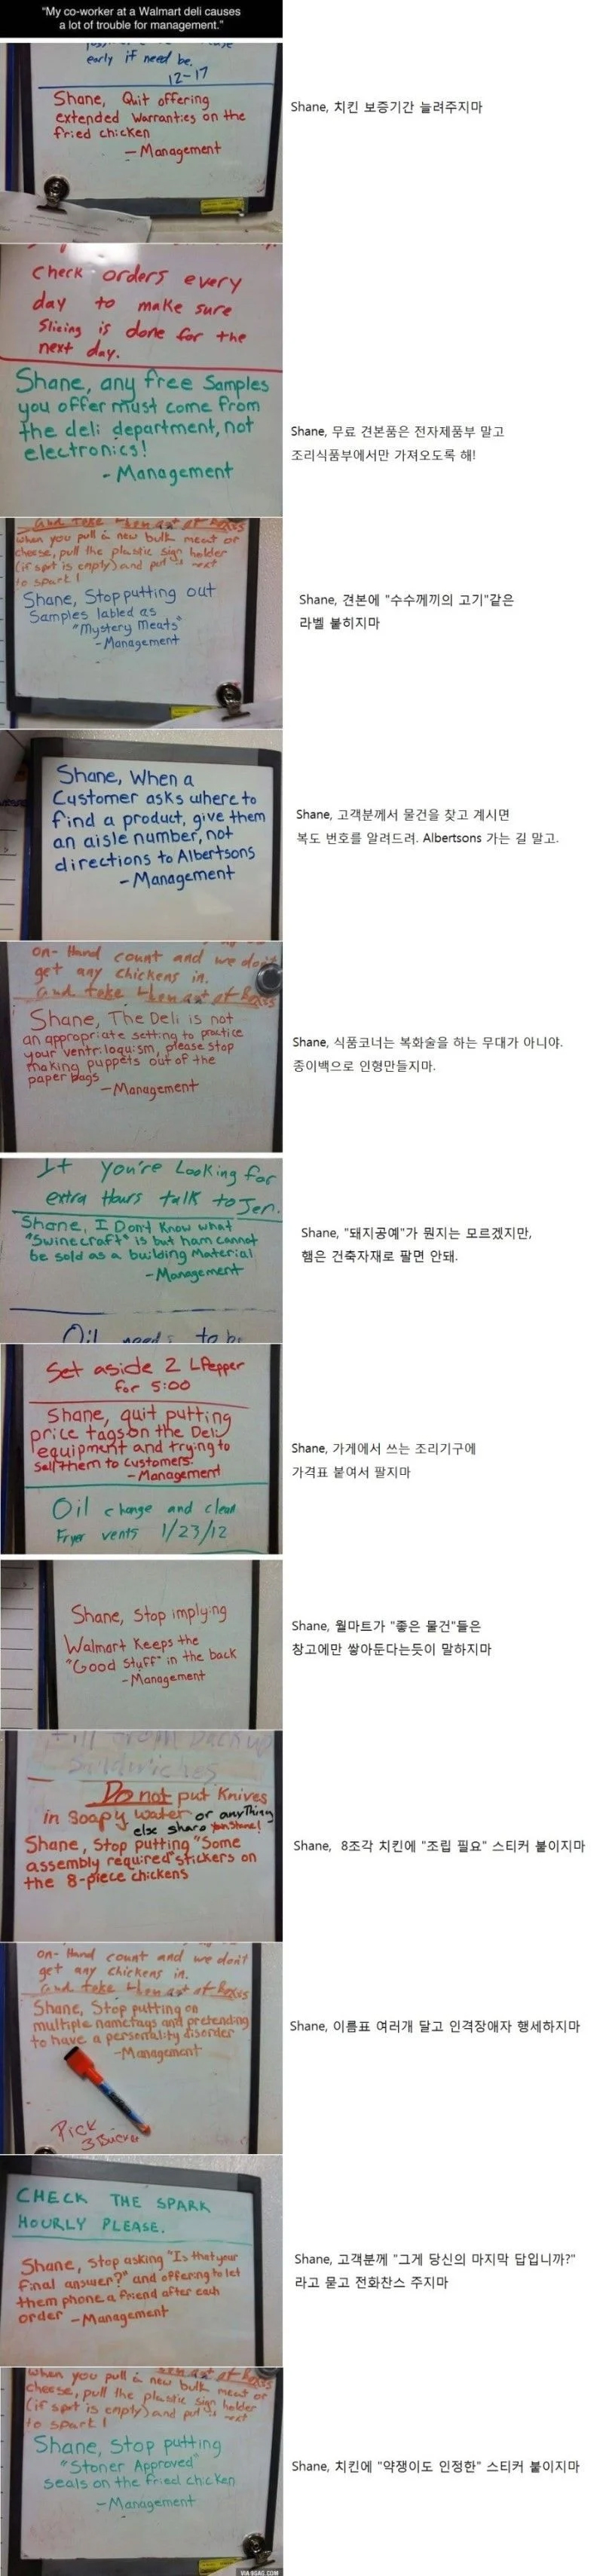 "My co-worker at a Walmart deli causes
a lot of trouble for management."
early if need be.
12-17
Shane, Quit offering
extended warranties on the
fried chicken
- Management
Shane, 치킨 보증기간 늘려주지마
Check orders every
day to make sure
Slicing is done for the
next day.
Shane, any free Samples
you offer must come from
the deli department, not
electronics!
- Management
Shane, 무료 견본품은 전자제품부 말고
조리식품부에서만 가져오도록 해!
and take them out of boxes
when you pull a new bulk meat or
cheese, pull the plastic sign holder
(if spot is empty) and put it next
to spark!
Shane, Stop putting out
Samples labled as
"Mystery Meats"
- Management
Shane, 견본에 "수수께끼의 고기"같은
라벨 붙히지마
Shane, When a
Customer asks where to
find a product, give them
an aisle number, not
directions to Albertsons
- Management
Shane, 고객분께서 물건을 찾고 계시면
복도 번호를 알려드려. Albertsons 가는 길 말고.
on-Hand count and we don't
get any chickens in.
and take them out of boxes
Shane, The Deli is not
an appropriate setting to practice
your ventriloquism, please stop
making puppets out of the
paper bags
- Management
Shane, 식품코너는 복화술을 하는 무대가 아니야.
종이백으로 인형만들지마.
If you're Looking for
extra Hours talk to Jen.
Shane, I Don't Know what
"Swinecraft" is but ham cannot
be sold as a building Material
- Management
Oil needs to be
Shane, "돼지공예"가 뭔지는 모르겠지만,
햄은 건축자재로 팔면 안돼.
Set aside 2 LPepper
for 5:00
Shane, quit putting
price tags on the Deli
equipment and trying to
sell them to customers.
- Management
Oil change and clean
Fryer vents 1/23/12
Shane, 가게에서 쓰는 조리기구에
가격표 붙여서 팔지마
Shane, Stop implying
Walmart Keeps the
"Good Stuff" in the back
- Management
Shane, 월마트가 "좋은 물건"들은
창고에만 쌓아둔다는듯이 말하지마
Fill from backup
Sandwiches
Do not put Knives
in Soapy water or anything
else sharp
Shane, Stop putting "Some
assembly required" stickers on
the 8-piece chickens
Shane, 8조각 치킨에 "조립 필요" 스티커 붙이지마
on-Hand count and we don't
get any chickens in.
and take them out of boxes
Shane, Stop putting on
multiple nametags and pretending
to have a personality disorder
- Management
Pick
3 Bucket
Shane, 이름표 여러개 달고 인격장애자 행세하지마
CHECK THE SPARK
HOURLY PLEASE.
Shane, Stop asking "Is that your
final answer?" and offering to let
them phone a friend after each
order - Management
Shane, 고객분께 "그게 당신의 마지막 답입니까?"
라고 묻고 전화찬스 주지마
them out of boxes
when you pull a new bulk meat or
cheese, pull the plastic sign holder
(if spot is empty) and put it next
to spark!
Shane, Stop putting
"Stoner Approved"
seals on the fried chicken
- Management
Shane, 치킨에 "약쟁이도 인정한" 스티커 붙이지마
VIA 9GAG.COM